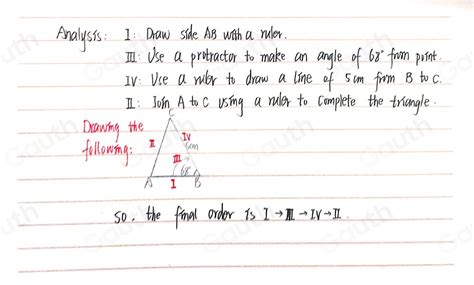 Analysis: I: Draw side AB with a ruler.
III: Use a protractor to make an angle of 68° from point.
IV: Use a ruler to draw a line of 5 cm from B to C.
II: Join A to C using a ruler to complete the triangle.
Drawing the
following:
C
II
IV
5cm
III
68°
A
I
B
so, the final order is I → III → IV → II.